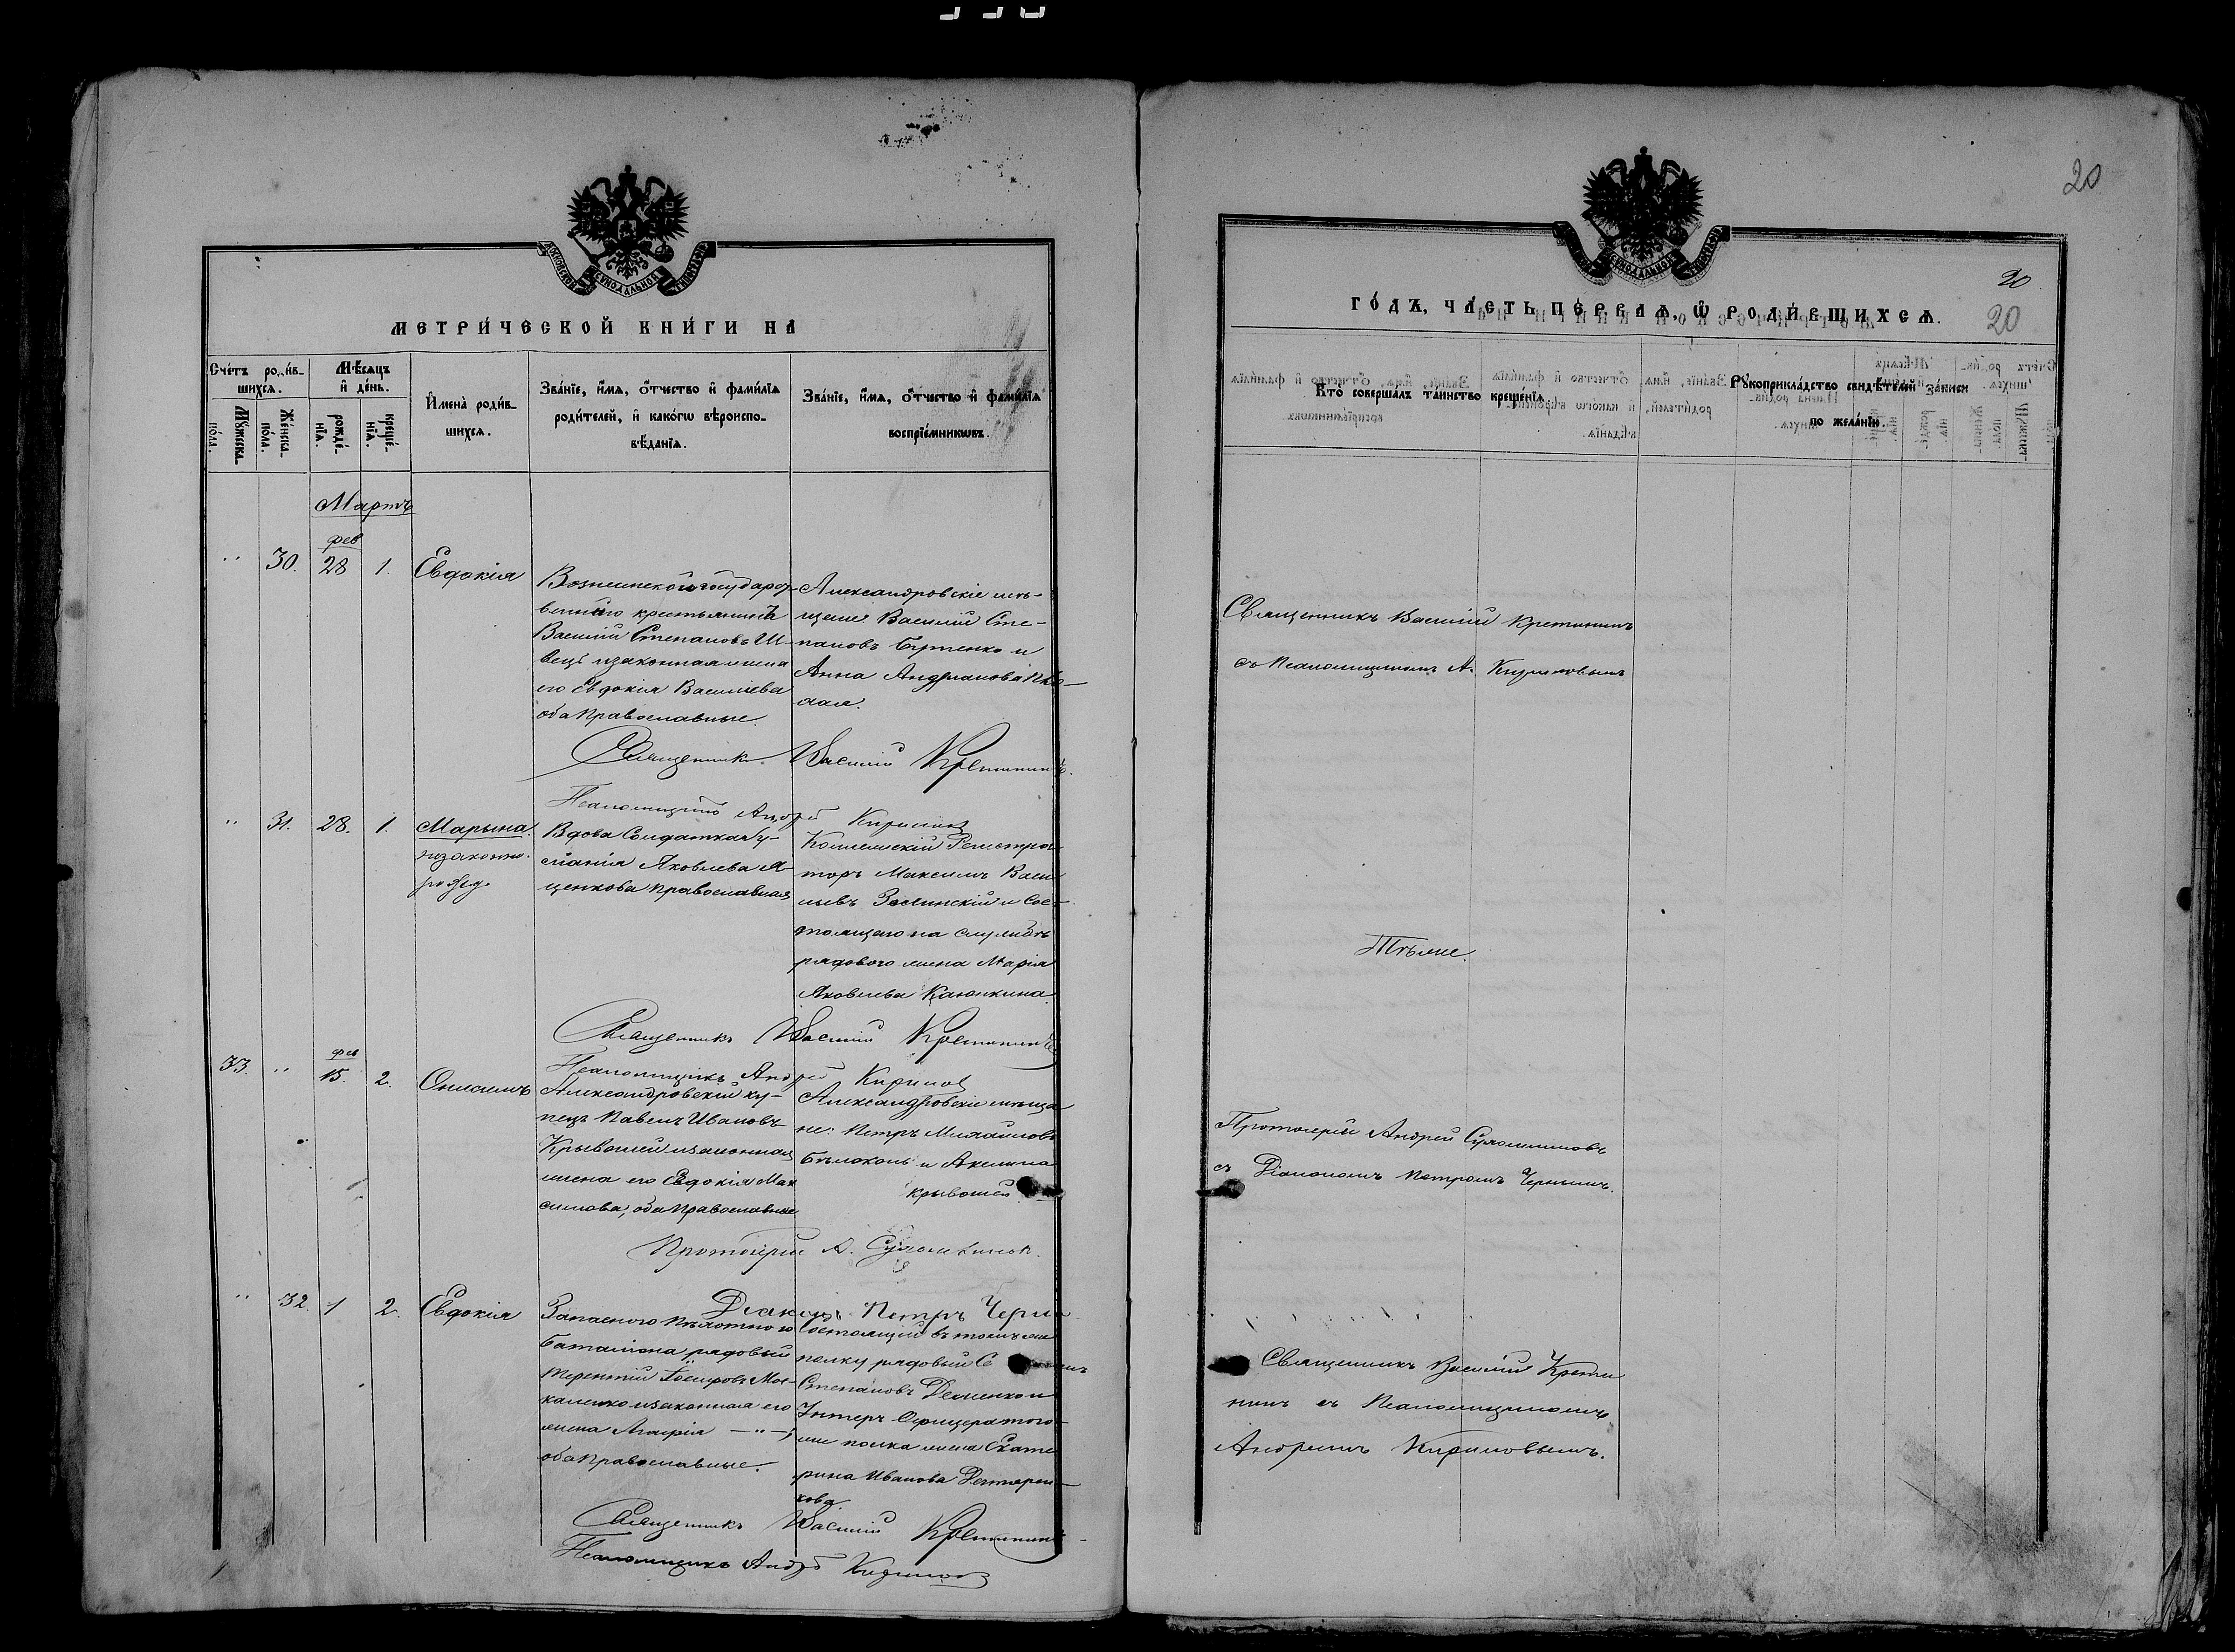 20
МЕТРИЧЕСКОЙ КНИГИ НА
Счетъ родив-
шихся.
Мѣсяцъ
и день.
Имена родив-
шихся.
Званіе, имя, отчество и фамилія
родителей, и какогѡ вѣроиспо-
вѣданія.
Званіе, имя, отчество и фамилія
воспріемникѡвъ.
Мужеска-
пола.
Женска-
пола.
рожде-
нія.
креще-
нія.
Мартъ
фев
" 30. 28 1. Евдокія
венного крестьянинъ
Василій Степановъ Ш-
вецъ и законная жена
его Евдокія Василіева
оба Православные.
Александровскіе мѣ-
щане Василій Сте-
пановъ Бутенко и
Анна Андріанова
Священникъ Василій Кретининъ.
Псаломщикъ Андрей Кириловъ
" 31. 28. 1. Марына.
незаконно-
рожд.
Вдова Солдатка
Яковлева Я-
ценкова Православная
Коллежскій Регистра-
торъ Максимъ Васи-
льевъ и Сос-
тоящего на службѣ
рядового жена Марія
Яковлева
Священникъ Василій Кретининъ
Псаломщикъ Андрей Кириловъ
фев
33. " 15. 2. Онисимъ
Александровскій ку-
пецъ Павелъ Ивановъ
Крывошей и законная
жена его Евдокія Мак
симова, оба Православные
Александровскіе мѣща
не: Петръ Михайловъ
Бѣлоконь и Акилина
Крывошей
Протоіерей А.
Діаконъ Петръ Черны
" 32. 1 2. Евдокія
Запасного Пѣхотного
баталіона рядовый
Терентій
и законная его
жена Марія — " —,
оба Православные.
Состоящій въ томъ же
полку рядовый
Степановъ и
Унтеръ Офицера того
же полка жена Екате
рина Иванова
кова.
Священникъ Василій Кретининъ
Псаломщикъ Андрей Кириловъ
20
20
ГОДЪ, ЧАСТЬ ПЕРВАЯ, Ѡ РОДИВШИХСЯ.
Кто совершалъ таинство крещенія.
Рукоприкладство свидѣтелей записи
по желанію.
Священникъ Василій Кретининъ
съ Псаломщикомъ А. Кириловымъ
Тѣ же.
Протоіерей Андрей
съ Діакономъ Петромъ Чернымъ.
Священникъ Василій Крети
нинъ съ Псаломщикомъ
Андреемъ Кириловымъ.